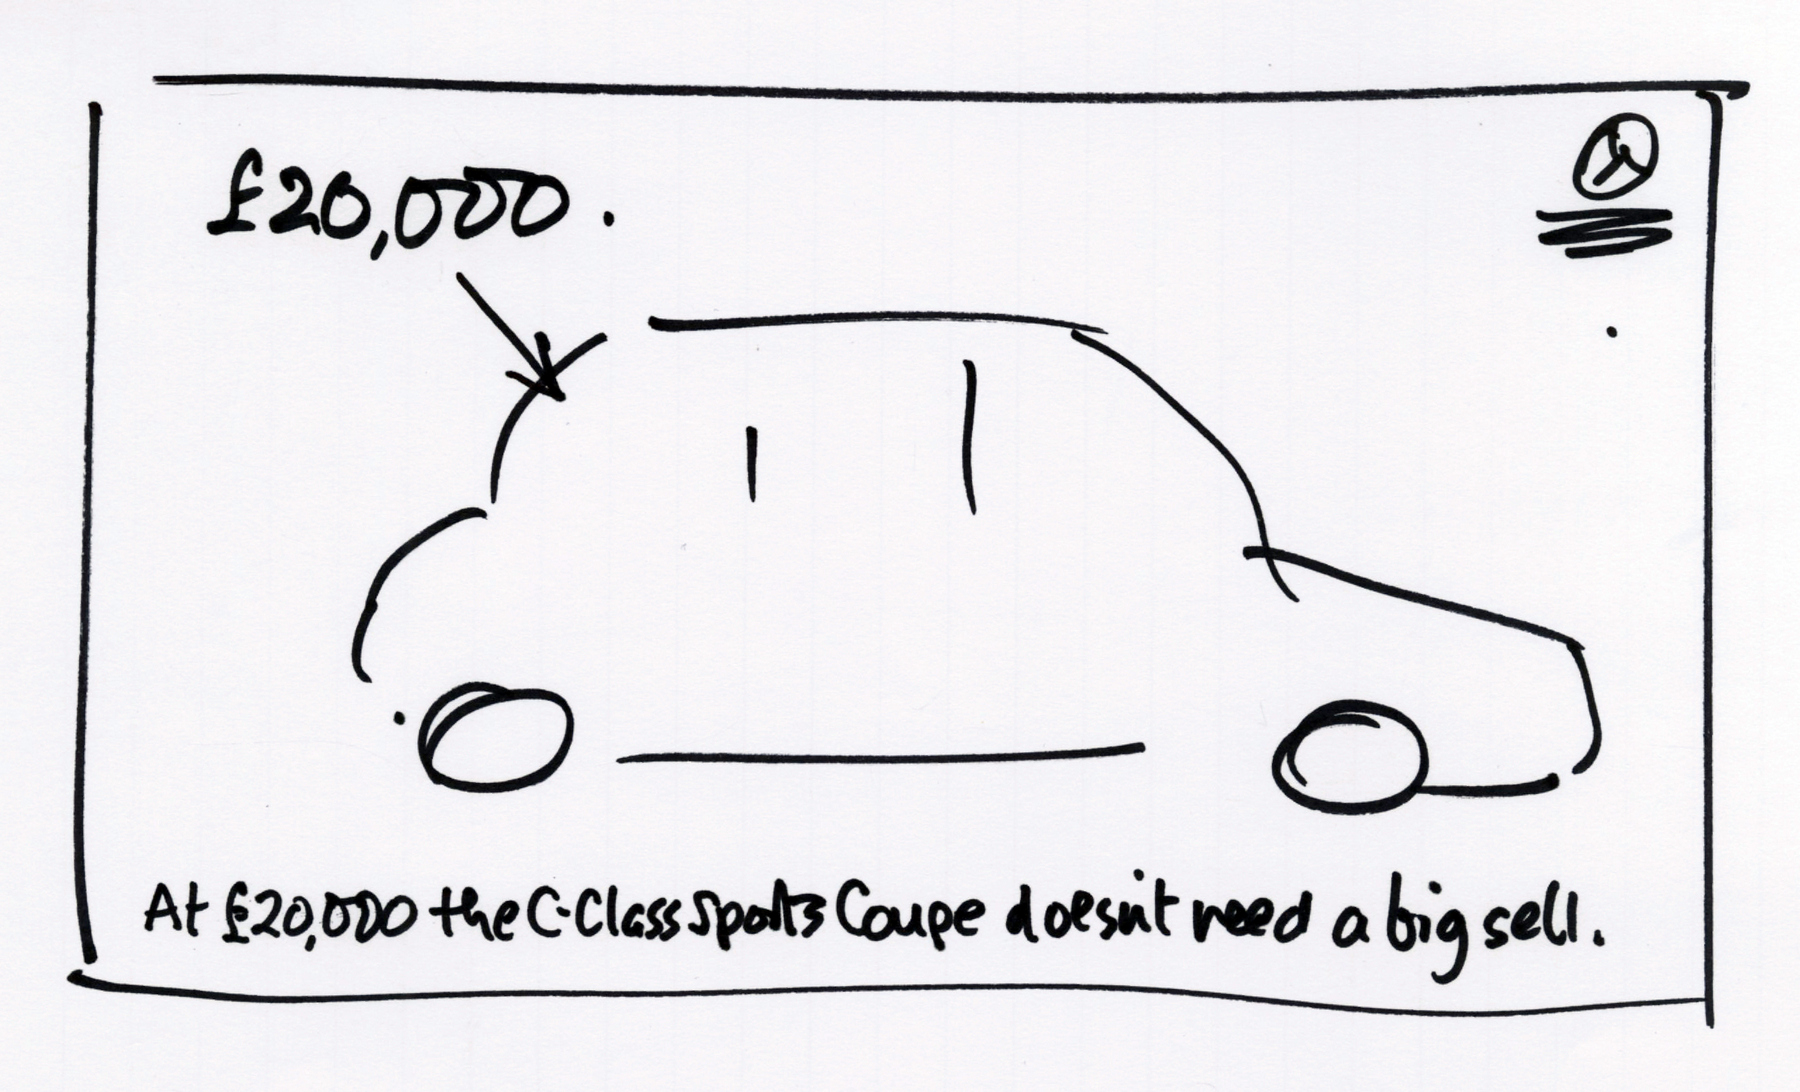 £20,000.
At £20,000 the C-Class Sports Coupe doesn't need a big sell.